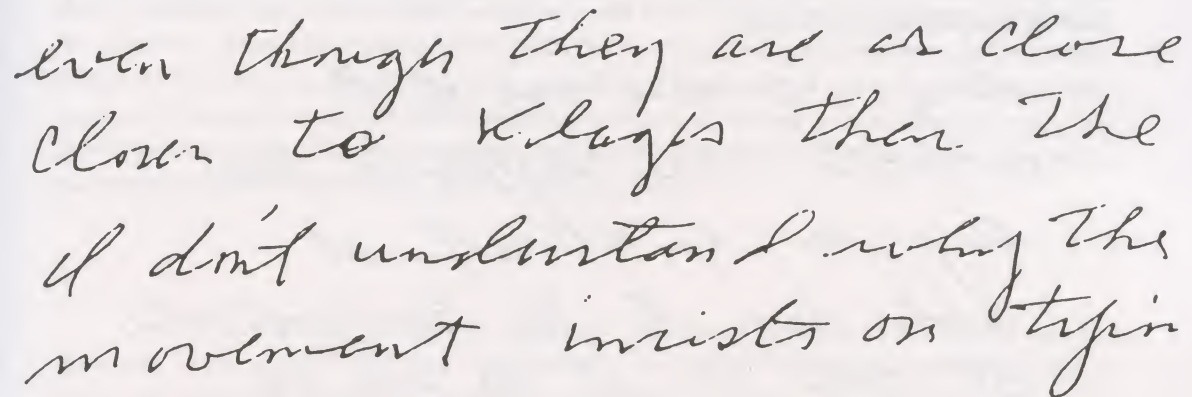 even though they are as close
closer to Klages than the
I don't understand why the
movement insists on tyin